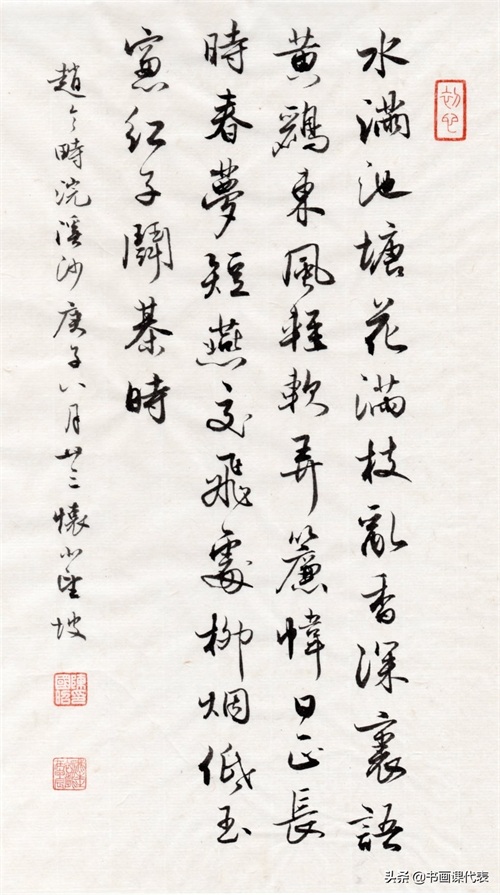 初心
水滿池塘花滿枝亂香深裏語
黄鸝東風輕軟弄簾幃日正長
時春夢短燕交飛處柳烟低玉
窻紅子鬭棊時
趙令時浣溪沙庚子八月廿三懷坡
头条 @书画课代表